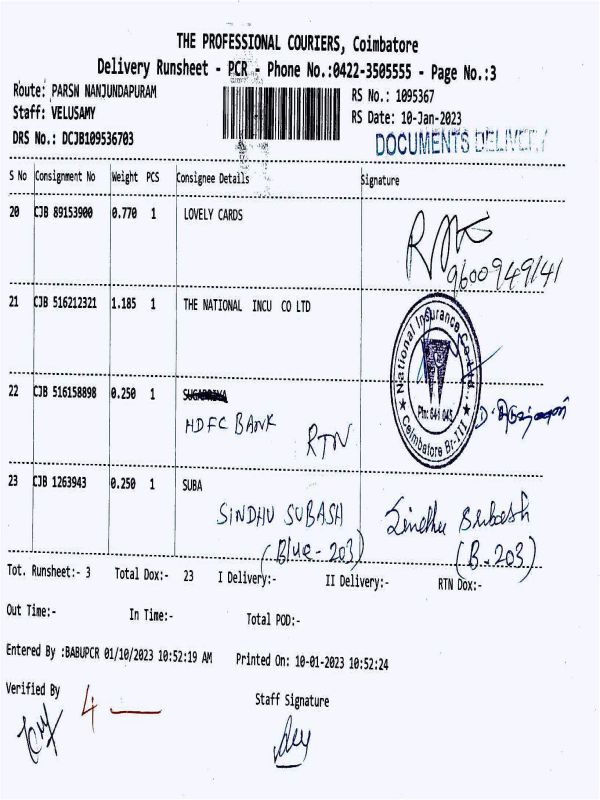 THE PROFESSIONAL COURIERS, Coimbatore
Delivery Runsheet - PCR - Phone No.:0422-3505555 - Page No.:3
Route: PARSN NANJUNDAPURAM
RS No.: 1095367
Staff: VELUSAMY
RS Date: 10-Jan-2023
DRS No.: DCJB109536703
DOCUMENTS DELIVERY
S No Consignment No Weight PCS Consignee Details Signature
20 CJB 89153900 0.770 1 LOVELY CARDS
9600949141
21 CJB 516212321 1.185 1 THE NATIONAL INCU CO LTD
National Insurance Co. Ltd.
Pin: 641 045
Coimbatore Br-III
22 CJB 516158898 0.250 1
HDFC BANK RTN
23 CJB 1263943 0.250 1 SUBA
SINDHU SUBASH Sindhu Subash
(Blue-203) (B.203)
Tot. Runsheet:- 3 Total Dox:- 23 I Delivery:- II Delivery:- RTN Dox:-
Out Time:- In Time:- Total POD:-
Entered By :BABUPCR 01/10/2023 10:52:19 AM Printed On: 10-01-2023 10:52:24
Verified By Staff Signature
4 —